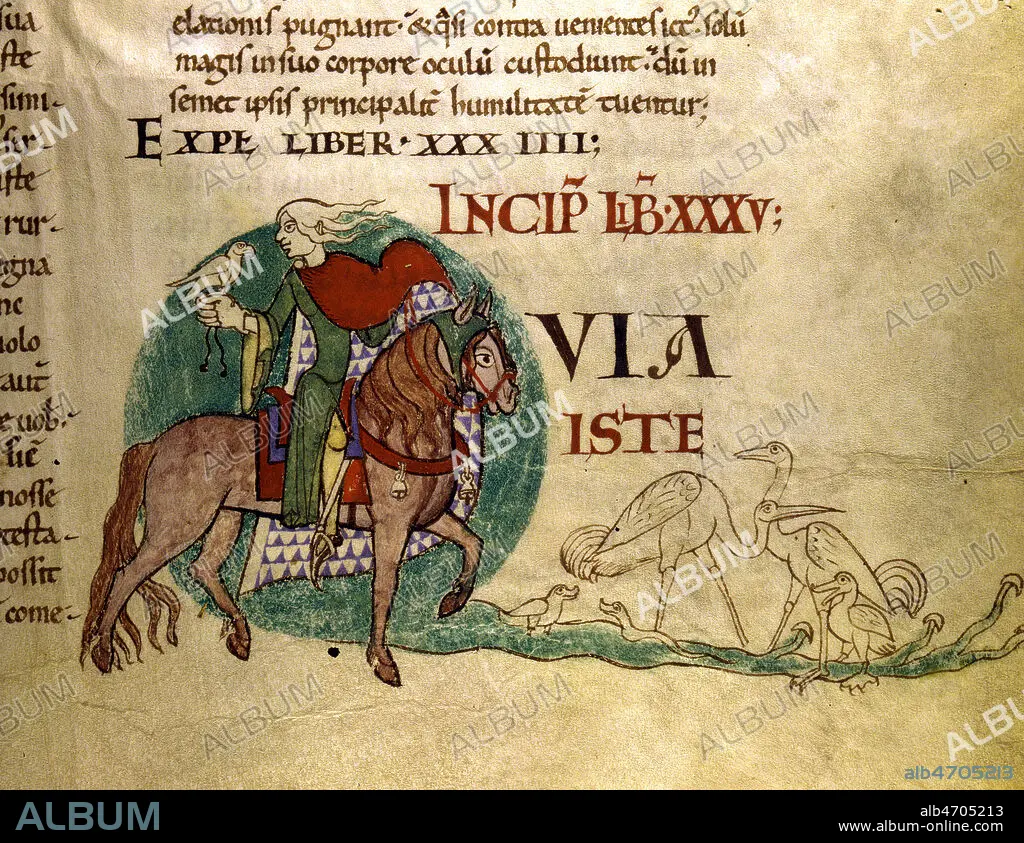 sua
ste
simi-
iste
rur-
egna
ne
uolo
aut̄
e uob̄.
siē
nosse
testa-
possit
come-
elationis pugnant· & q̄si contra uenientes ict᷒· solū
magis in suo corpore oculū custodiunt· dū in
semet ipsis principalit̄ humilitatē tuentur;
EXPŁ LIBER· XXX IIII;
INCIP̄ LIB̄·XXXV;
VIA
ISTE
ALBUM
alb4705213
ALBUM
alb4705213
www.album-online.com